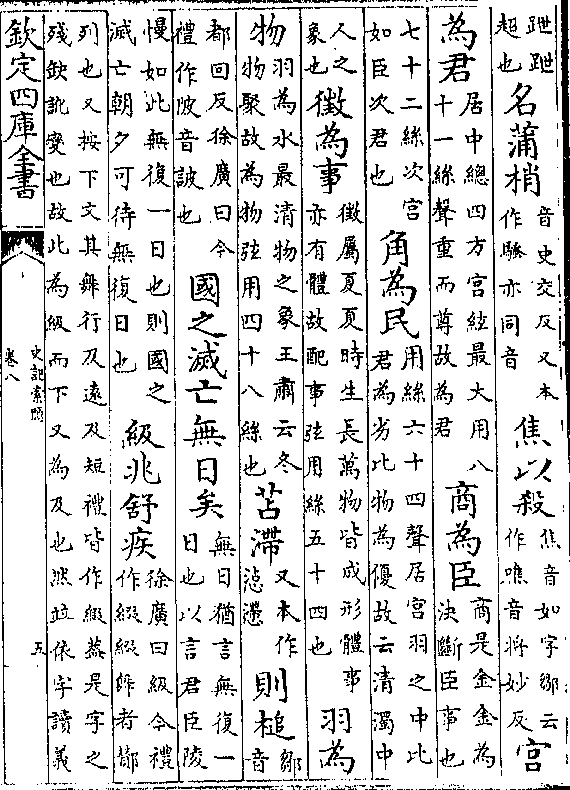 跇跇超也名蒲梢音史交反又本作騷亦同音焦以殺焦音如字鄒云作噍音將妙反宮
為君居中總四方宮絃最大用八十一絲聲重而尊故為君商為臣商是金金為決斷臣事也
七十二絲次宮如臣次君也角為民用絲六十四聲居宮羽之中比君為劣比物為優故云清濁中
人之象也徵為事徵屬夏夏時生長萬物皆成形體事亦有體故配事弦用絲五十四也羽為
物羽為水最清物之象王肅云冬物聚故為物弦用四十八絲也苫滯又本作惉懘則槌鄒音
都回反徐廣曰今禮作陂音詖也國之滅亡無日矣無日猶言無復一日也以言君臣陵
慢如此無復一日也則國之滅亡朝夕可待無復日也級兆舒疾徐廣曰級今禮作綴綴舞者酇
列也又按下文其舞行及遠及短禮皆作綴蓋是字之殘缺訛變也故此為級而下又為及也然並依字讀義
欽定四庫全書
史記索隱
卷八
五